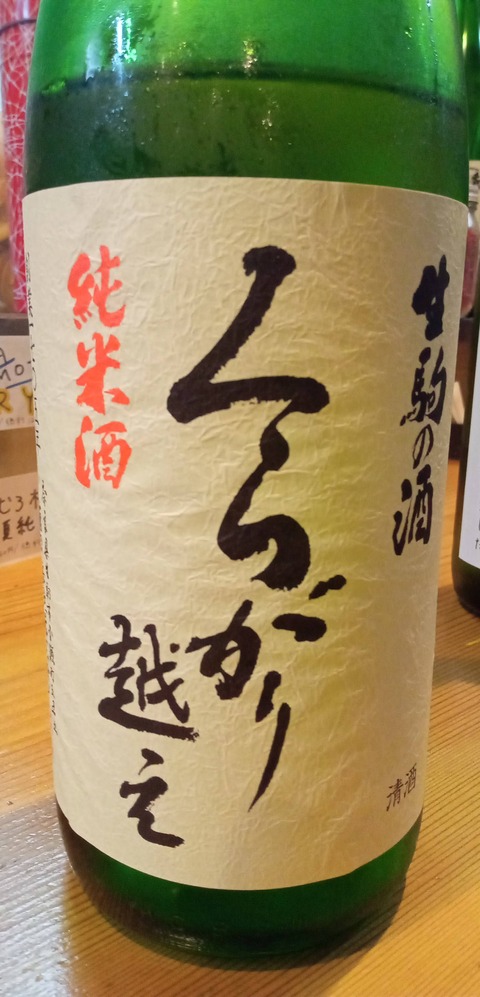 生駒の酒
くらがり
越え
純米酒
清酒